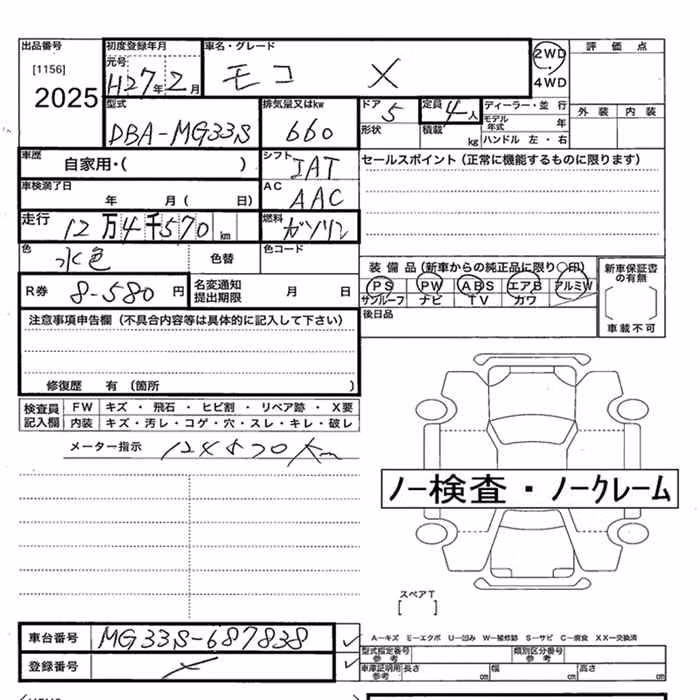 出品番号 初度登録年月 車名・グレード 2WD 評価点
[1156] 元号 H27年2月 モコ X 4WD
2025 型式 排気量又はkw ドア 5 定員 4人 ディーラー・並行 外装 内装
DBA-MG33S 660 形状 積載 kg モデル年式 年
ハンドル 左・右
車歴 自家用・( ) シフト IAT セールスポイント(正常に機能するものに限ります)
車検満了日 年 月( 日) AC AAC
走行 12万4千570km 燃料 ガソリン
色 水色 色替 色コード
装備品(新車からの純正品に限り○印) 新車保証書の有無
R券 8-580円 名変通知提出期限 月 日 PS PW ABS エアB アルミW
サンルーフ ナビ TV カワ
[ ]
後日品 車載不可
注意事項申告欄(不具合内容等は具体的に記入して下さい)
修復歴 有(箇所 )
検査員記入欄 FW キズ・飛石・ヒビ割・リペア跡・X要
内装 キズ・汚レ・コゲ・穴・スレ・キレ・破レ
メーター指示 124570km
ノー検査・ノークレーム
スペアT
[ ]
車台番号 MG33S-687838
A−キズ E−エクボ U−凹み W−補修跡 S−サビ C−腐食 XX−交換済
型式指定番号 参考 類別区分番号 参考
登録番号 車庫証明用 参考 長さ cm 幅 cm 高さ cm